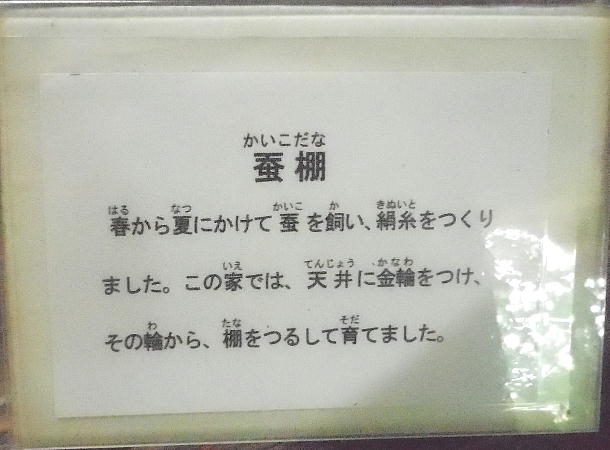 かいこだな
蚕棚
はる なつ かいこ か きぬいと
春から夏にかけて蚕を飼い、絹糸をつくり
いえ てんじょう かなわ
ました。この家では、天井に金輪をつけ、
わ たな そだ
その輪から、棚をつるして育てました。